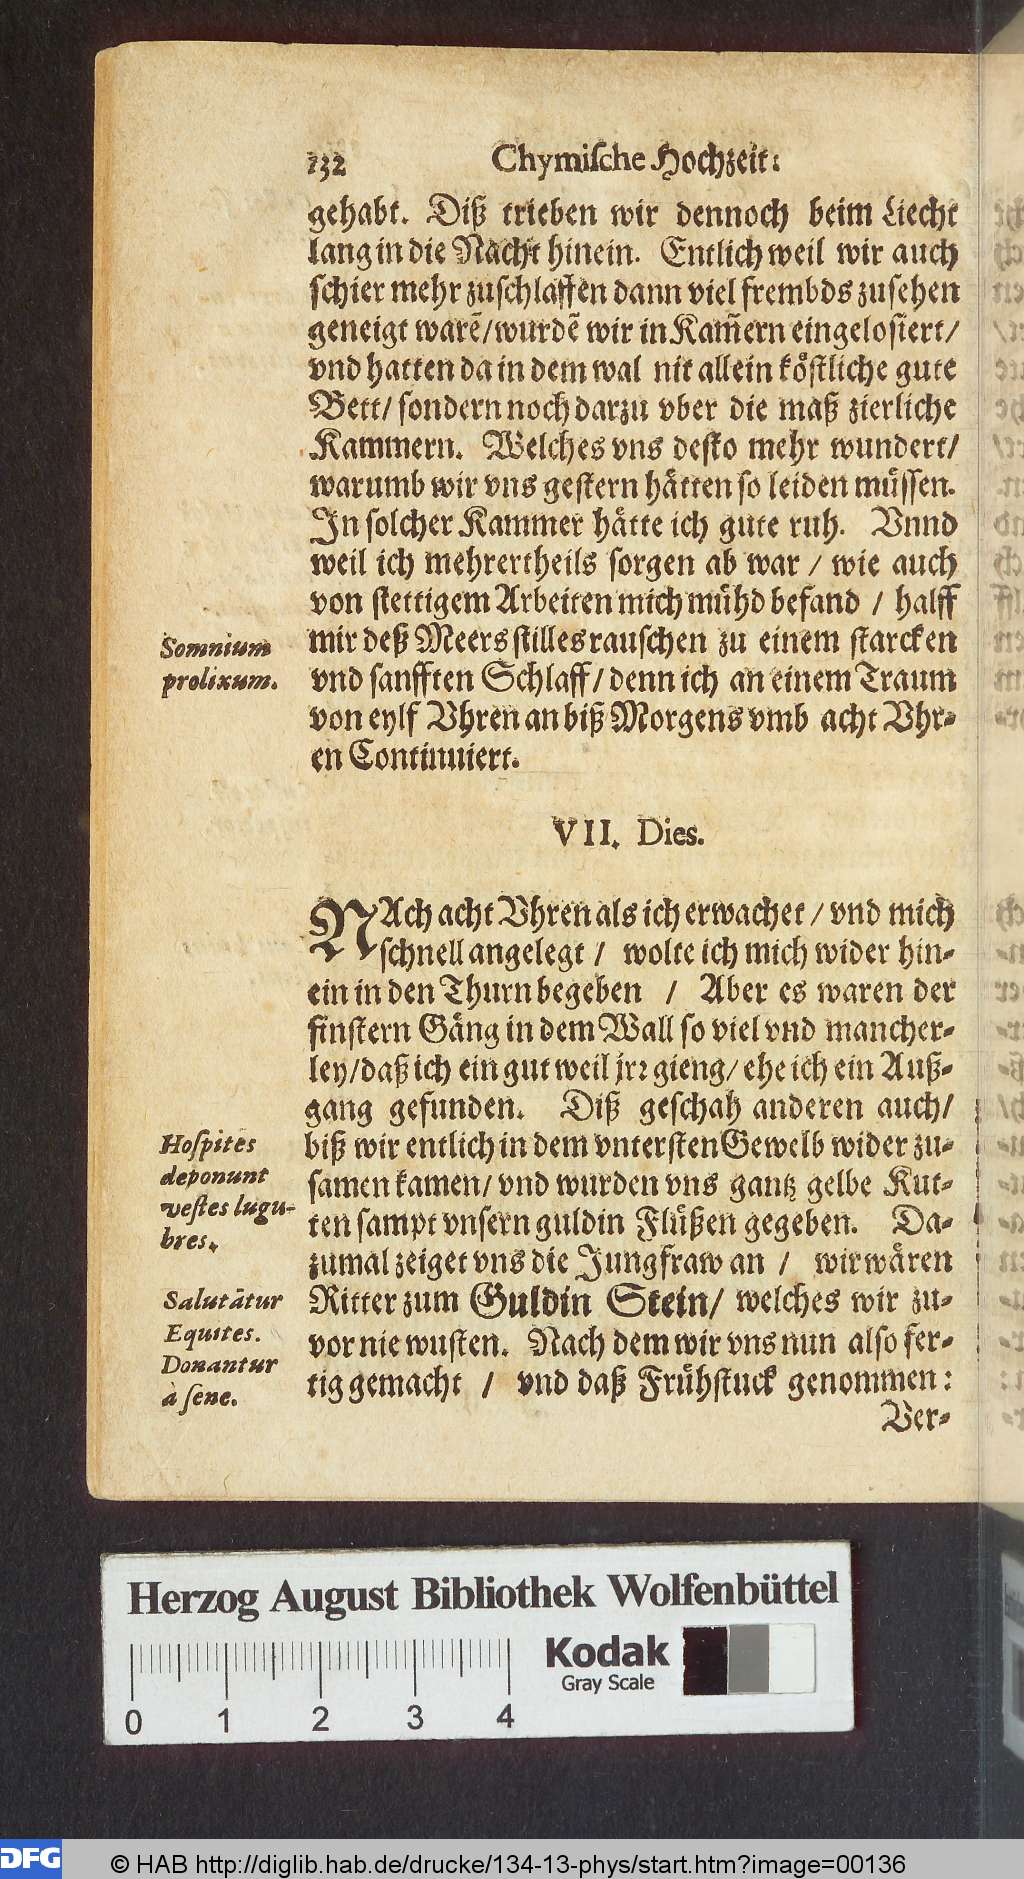 132 Chymische Hochzeit:
gehabt. Diß trieben wir dennoch beim Liecht
lang in die Nacht hinein. Entlich weil wir auch
schier mehr zuschlaffen dann viel frembds zusehen
geneigt warẽ/wurdẽ wir in Kam̃ern eingelosiert/
vnd hatten da in dem wal nit allein köstliche gute
Bett/ sondern noch darzu vber die maß zierliche
Kammern. Welches vns desto mehr wundert/
warumb wir vns gestern hätten so leiden müssen.
In solcher Kammer hätte ich gute ruh. Vnnd
weil ich mehrertheils sorgen ab war / wie auch
von stettigem Arbeiten mich mühd befand / halff
Somnium
prolixum.
mir deß Meers stilles rauschen zu einem starcken
vnd sanfften Schlaff/ denn ich an einem Traum
von eylf Vhren an biß Morgens vmb acht Vhr-
en Continuiert.
VII. Dies.
NAch acht Vhren als ich erwachet / vnd mich
schnell angelegt / wolte ich mich wider hin-
ein in den Thurn begeben / Aber es waren der
finstern Gäng in dem Wall so viel vnd mancher-
ley/daß ich ein gut weil jrꝛ gieng/ ehe ich ein Auß-
gang gefunden. Diß geschah anderen auch/
Hospites
deponunt
vestes lugu-
bres.
biß wir entlich in dem vntersten Gewelb wider zu-
samen kamen/ vnd wurden vns gantz gelbe Kut-
ten sampt vnsern guldin Flüßen gegeben. Da-
zumal zeiget vns die Jungfraw an / wir wären
Salutãtur
Equites.
Donantur
à sene.
Ritter zum Guldin Stein/ welches wir zu-
vor nie wusten. Nach dem wir vns nun also fer-
tig gemacht / vnd daß Frühstuck genommen:
Ver-
Herzog August Bibliothek Wolfenbüttel
Kodak
Gray Scale
0 1 2 3 4
DFG © HAB http://diglib.hab.de/drucke/134-13-phys/start.htm?image=00136